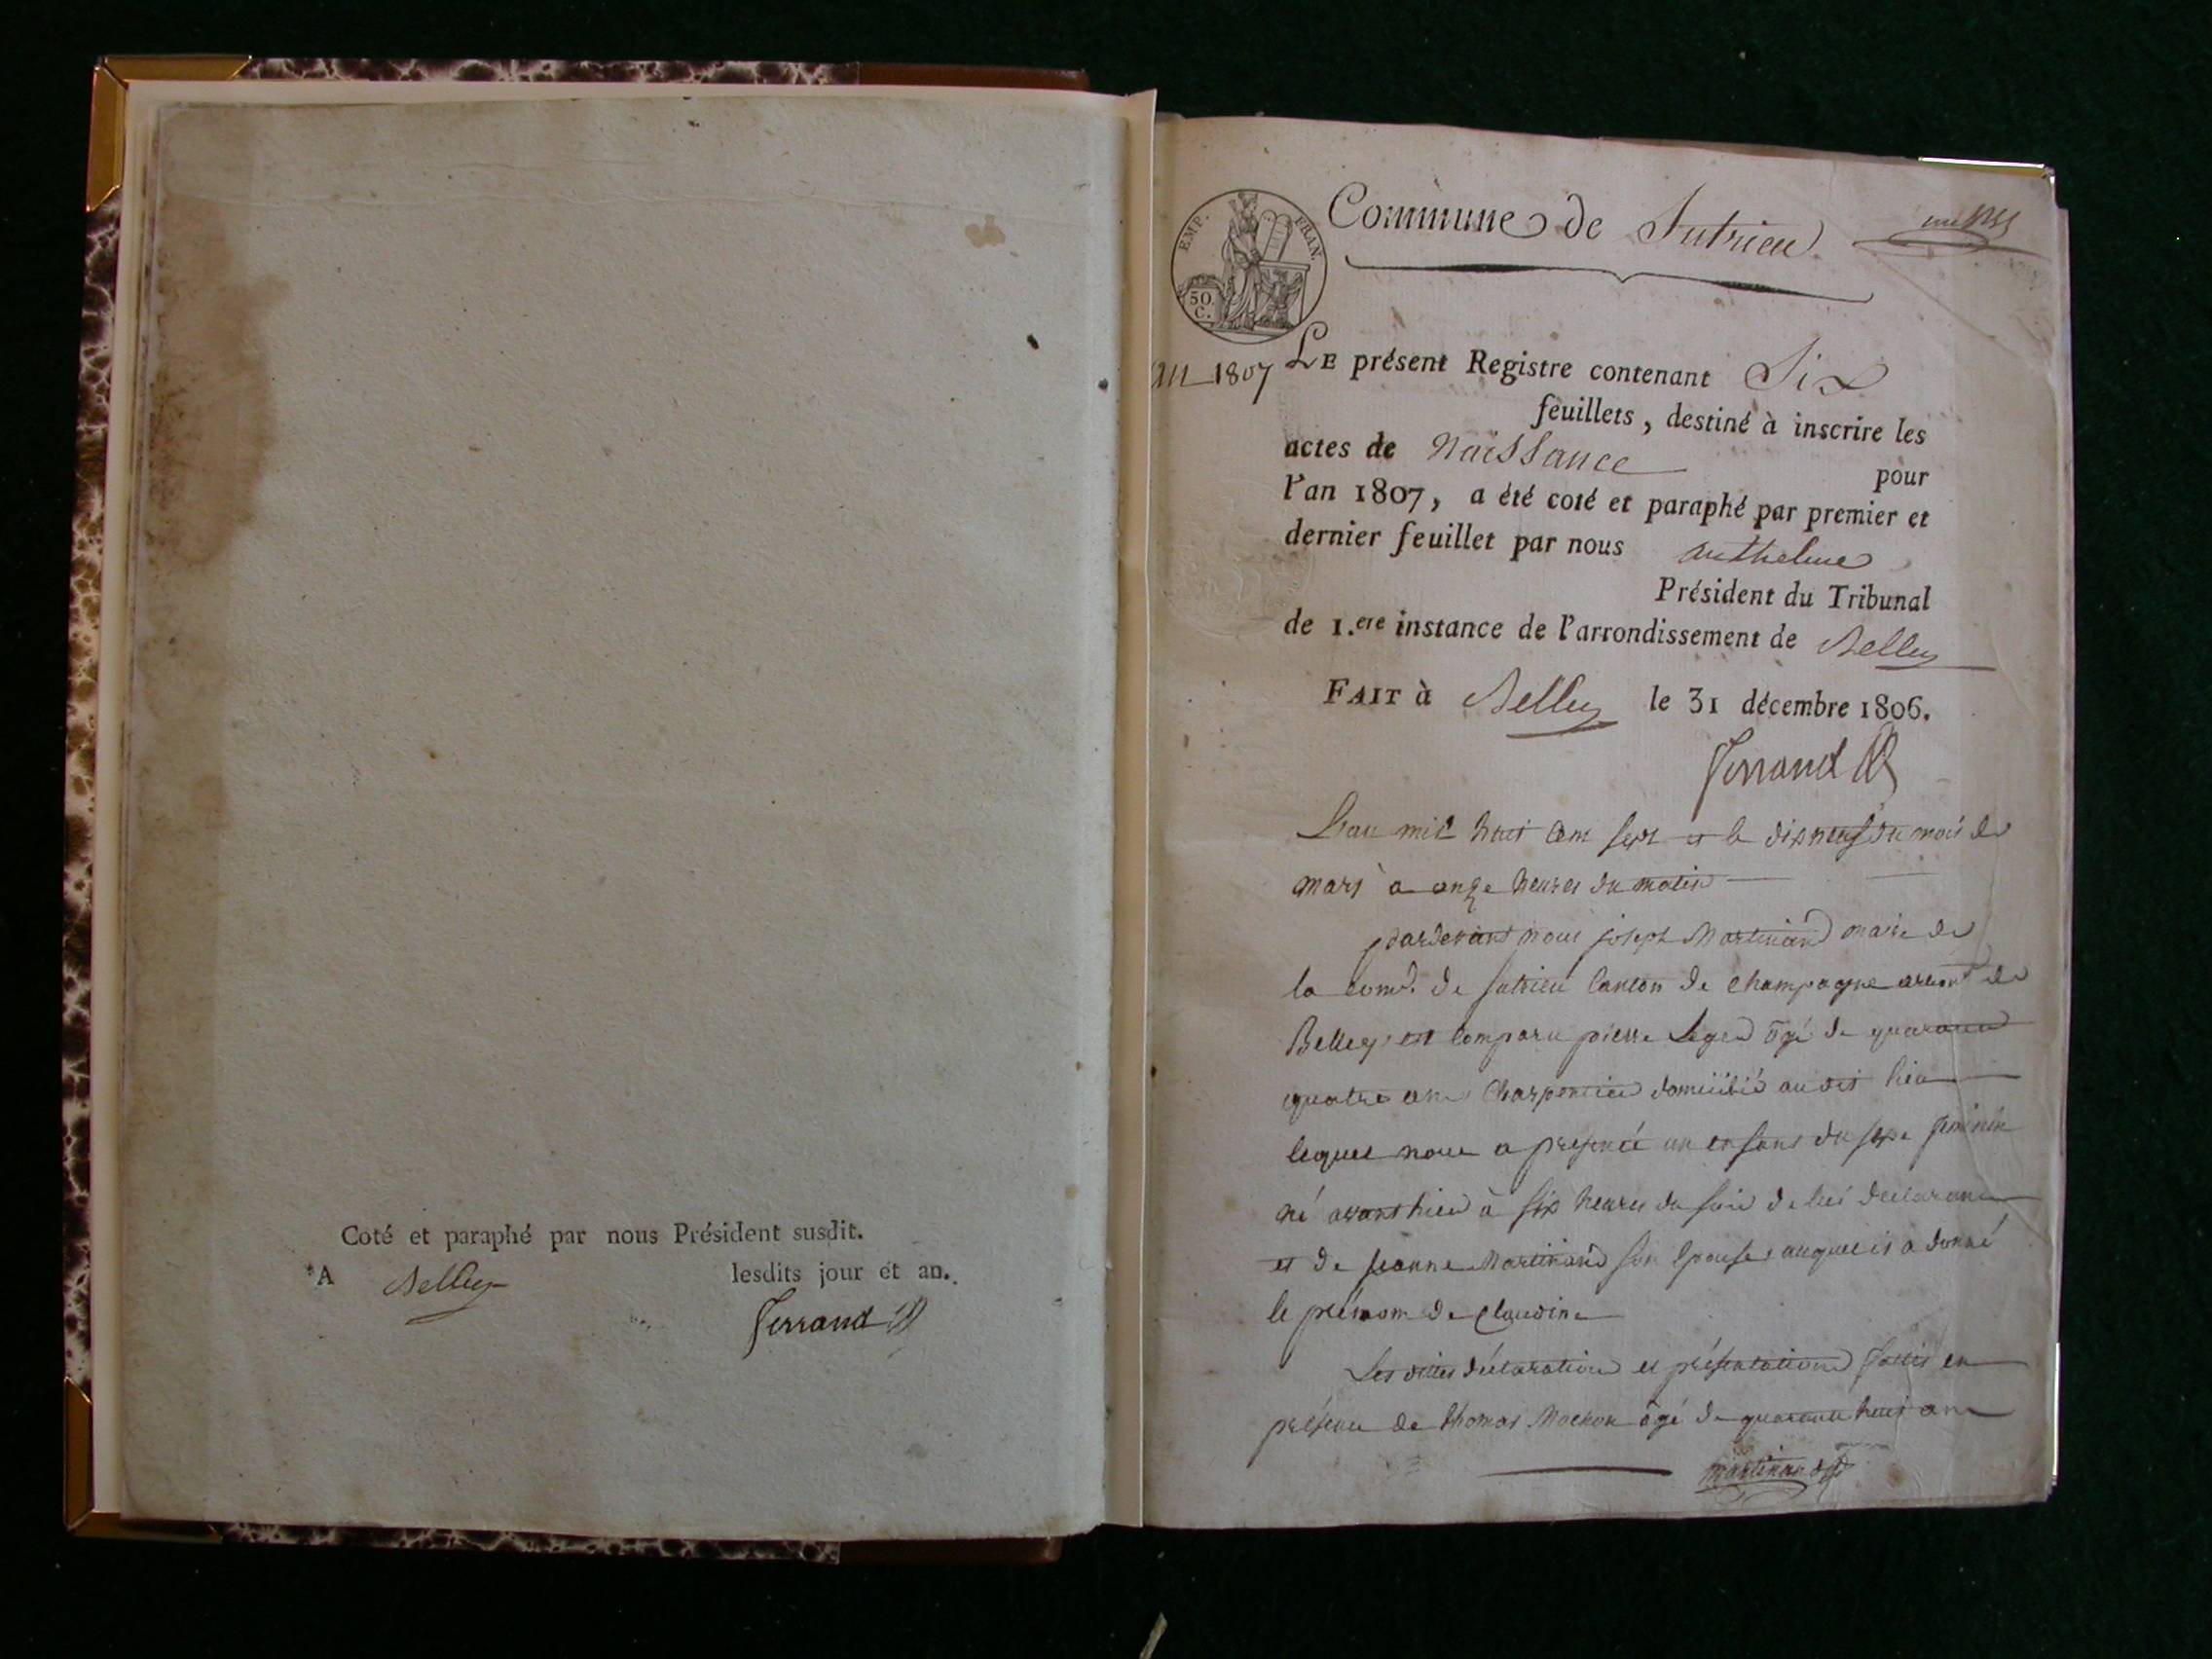 Coté et paraphé par nous Président susdit.
A Belley lesdits jour et an.
Ferrand
Commune de Sutrieu
EMP. FRAN.
50. C.
an 1807
LE présent Registre contenant Six
feuillets, destiné à inscrire les
actes de Naissance pour
l'an 1807, a été coté et paraphé par premier et
dernier feuillet par nous anthelme
Président du Tribunal
de 1.ere instance de l'arrondissement de Belley
FAIT à Belley le 31 décembre 1806.
Ferrand
L'an mil huit cent sept et le dixneuf du mois de
mars à onze heures du matin
pardevant nous joseph Martinand maire de
la comd. de sutrieu Canton de champagne arront de
Belley est comparu pierre âgé de quarante
quatre ans Charpentier domicilié audit lieu
lequel nous a presenté un enfant du sexe feminin
né avant hier à six heures du soir de lui declarant
et de jeanne Martinand son épouse auquel il a donné
le prénom de Claudine
Les dittes déclaration et présentation faittes en
présence de thomas âgé de quarante huit ans
Martinand